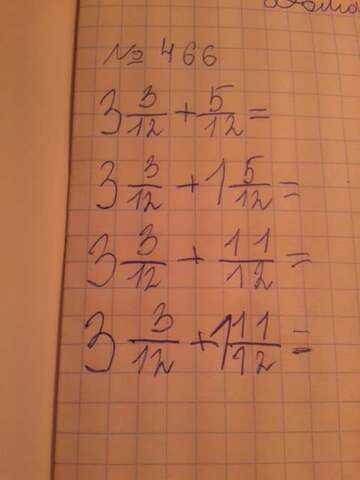 № 466
3 3/12 + 5/12 =
3 3/12 + 1 5/12 =
3 3/12 + 11/12 =
3 3/12 + 1 11/12 =